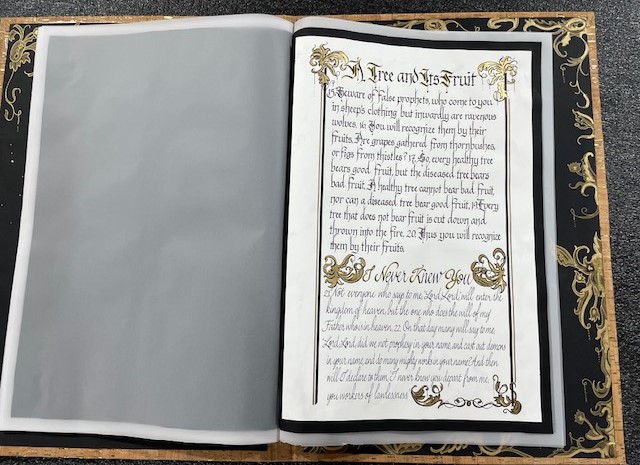 A Tree and Its Fruit
15. Beware of false prophets, who come to you
in sheep's clothing but inwardly are ravenous
wolves. 16. You will recognize them by their
fruits. Are grapes gathered from thornbushes,
or figs from thistles? 17. So, every healthy tree
bears good fruit, but the diseased tree bears
bad fruit. A healthy tree cannot bear bad fruit,
nor can a diseased tree bear good fruit. 19. Every
tree that does not bear fruit is cut down and
thrown into the fire. 20. Thus you will recognize
them by their fruits.
I Never Knew You
21. Not everyone who says to me, Lord, Lord, will enter the
kingdom of heaven, but the one who does the will of my
Father who is in heaven. 22. On that day many will say to me,
Lord, Lord, did we not prophesy in your name, and cast out demons
in your name, and do many mighty works in your name? And then
will I declare to them, I never knew you depart from me,
you workers of lawlessness